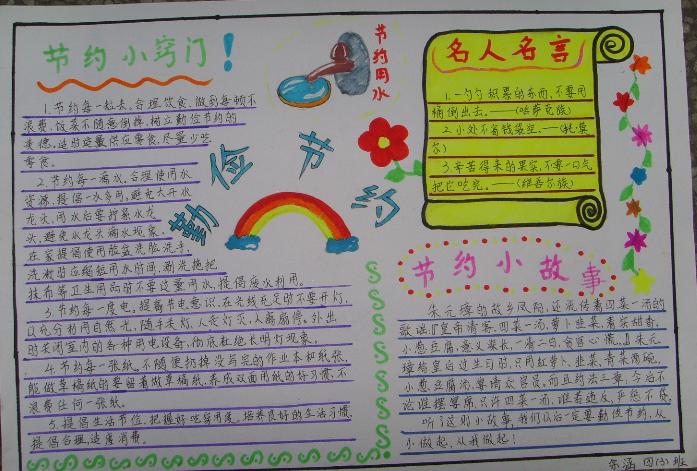 节约小窍门!
1.节约每一粒米,合理饮食,做到每顿不
浪费,饭菜不随意倒掉,树立勤俭节约的
美德,适时定量供应零食,尽量少吃
零食。
2.节约每一滴水,合理使用水
资源,提倡一水多用,避免大开水
龙头,用水后要拧紧水龙
头,避免水龙头滴水现象,
在家提倡使用脸盆洗脸洗手,
洗澡时应缩短用水时间,涮洗拖把、
抹布等卫生用品时不要过量用水,提倡废水利用。
3.节约每一度电。提高节电意识,在光线充足时不要开灯,
以充分利用自然光,随手关灯,人走灯灭,人离扇停。外出
时关闭室内的各种用电设备,彻底杜绝长明灯现象。
4.节约每一张纸。不随便扔掉没写完的作业本和纸张,
能做草稿纸的要留着做草稿纸,养成双面用纸的好习惯,不
浪费任何一张纸。
5.提倡生活节俭,把握好吃穿用度,培养良好的生活习惯,
提倡合理,适度消费。
节约用水
勤俭节约
名人名言
1.一勺勺积累的东西,不要用
桶倒出去。——(哈萨克族)
2.小处不省钱袋空。——(托莱
尔)
3.辛苦得来的果实,不要一口气
把它吃完。——(维吾尔族)
节约小故事
朱元璋的故乡凤阳,还流传着四菜一汤的
歌谣:"皇帝请客,四菜一汤,萝卜韭菜,着实甜香,
小葱豆腐,意义深长,一清二白,贪官心慌。"朱元
璋给皇后过生日时,只用红萝卜、韭菜,青菜两碗,
小葱豆腐汤,宴请众官员,而且约法三章:今后不
论谁摆宴席,只许四菜一汤,谁若违反,严惩不贷。
听了这则小故事,我们以后一定要勤俭节约,从
小做起,从我做起!
涵 四(3)班